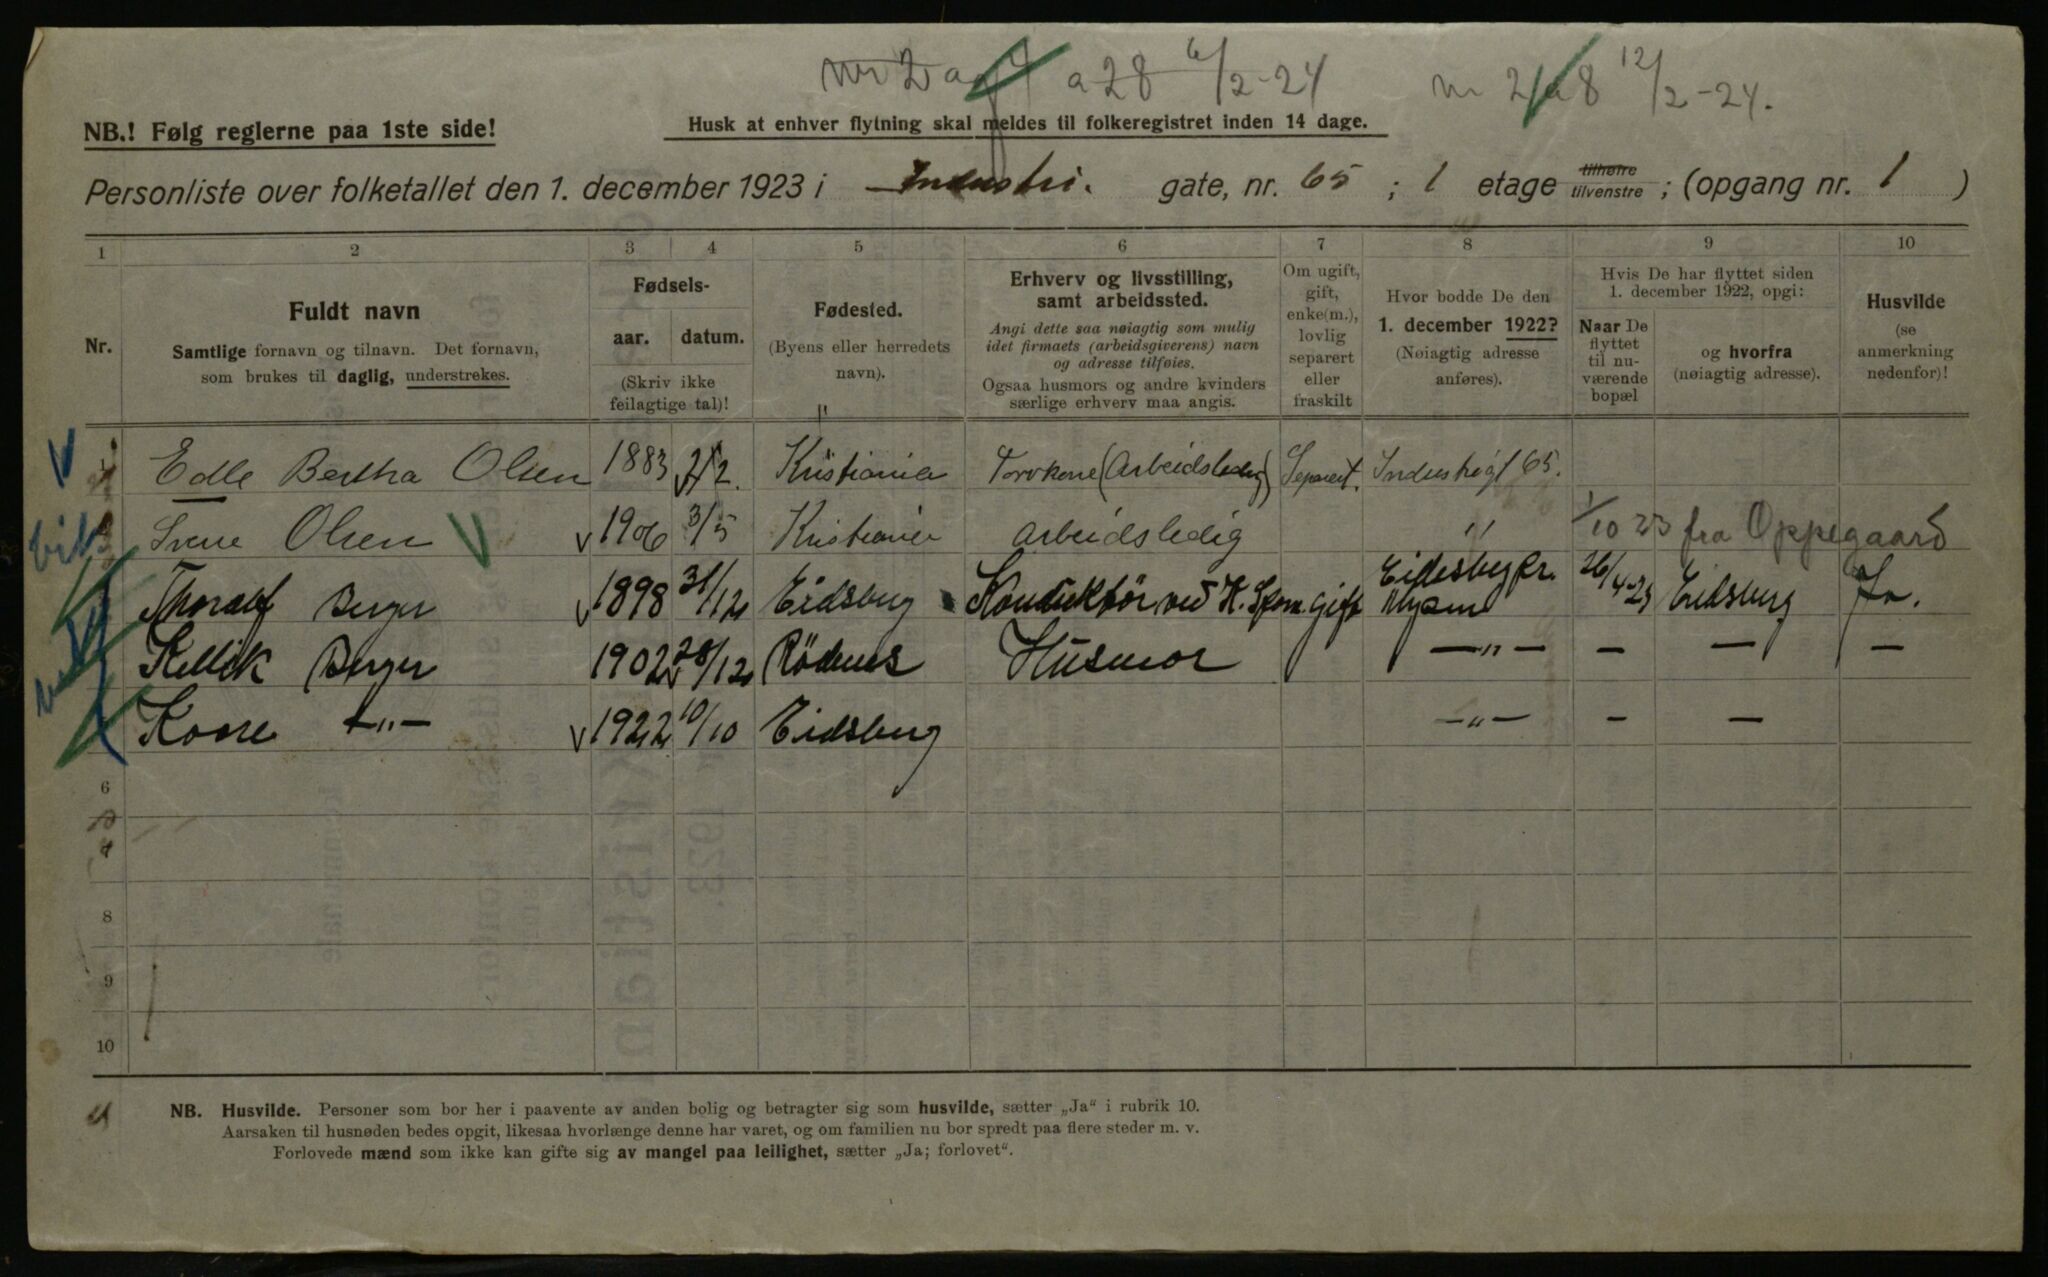 a 28 6/2-24 12/2-24.
NB.! Følg reglerne paa 1ste side!
Husk at enhver flytning skal meldes til folkeregistret inden 14 dage.
Personliste over folketallet den 1. december 1923 i Industri. gate, nr. 65 ; 1 etage tilhøire tilvenstre ; (opgang nr. 1 )
1 2 3 4 5 6 7 8 9 10
Nr.
Fuldt navn
Samtlige fornavn og tilnavn. Det fornavn,
som brukes til daglig, understrekes.
Fødsels-
aar. datum.
(Skriv ikke
feilagtige tal)!
Fødested.
(Byens eller herredets
navn).
"
Erhverv og livsstilling,
samt arbeidssted.
Angi dette saa nøiagtig som mulig
idet firmaets (arbeidsgiverens) navn
og adresse tilføies.
Ogsaa husmors og andre kvinders
særlige erhverv maa angis.
Om ugift,
gift,
enke(m.),
lovlig
separert
eller
fraskilt
Hvor bodde De den
1. december 1922?
(Nøiagtig adresse
anføres).
Hvis De har flyttet siden
1. december 1922, opgi:
Naar De
flyttet
til nu-
værende
bopæl
og hvorfra
(nøiagtig adresse).
Husvilde
(se
anmerkning
nedenfor)!
Edle Bertha Olsen 1883 Kristiania Torvkone (Arbeidsledig) Separert. Industrigt 65.
Olsen 1906 3/5 Kristiania Arbeidsledig " 1/10 23 fra Oppegaard
Thoralf Berger 1898 31/12 Eidsberg Konduktör ved K. Spor. gift Eidesberg pr. Mysen 26/4-23 Eidsberg Ja.
Berger 1902 28/12 Rödenes Husmor —"— — — —
Kaare —"— 1922 10/10 Eidsberg —"— — —
6
8
9
10
NB. Husvilde. Personer som bor her i paavente av anden bolig og betragter sig som husvilde, sætter „Ja" i rubrik 10.
Aarsaken til husnøden bedes opgit, likesaa hvorlænge denne har varet, og om familien nu bor spredt paa flere steder m. v.
Forlovede mænd som ikke kan gifte sig av mangel paa leilighet, sætter „Ja; forlovet".